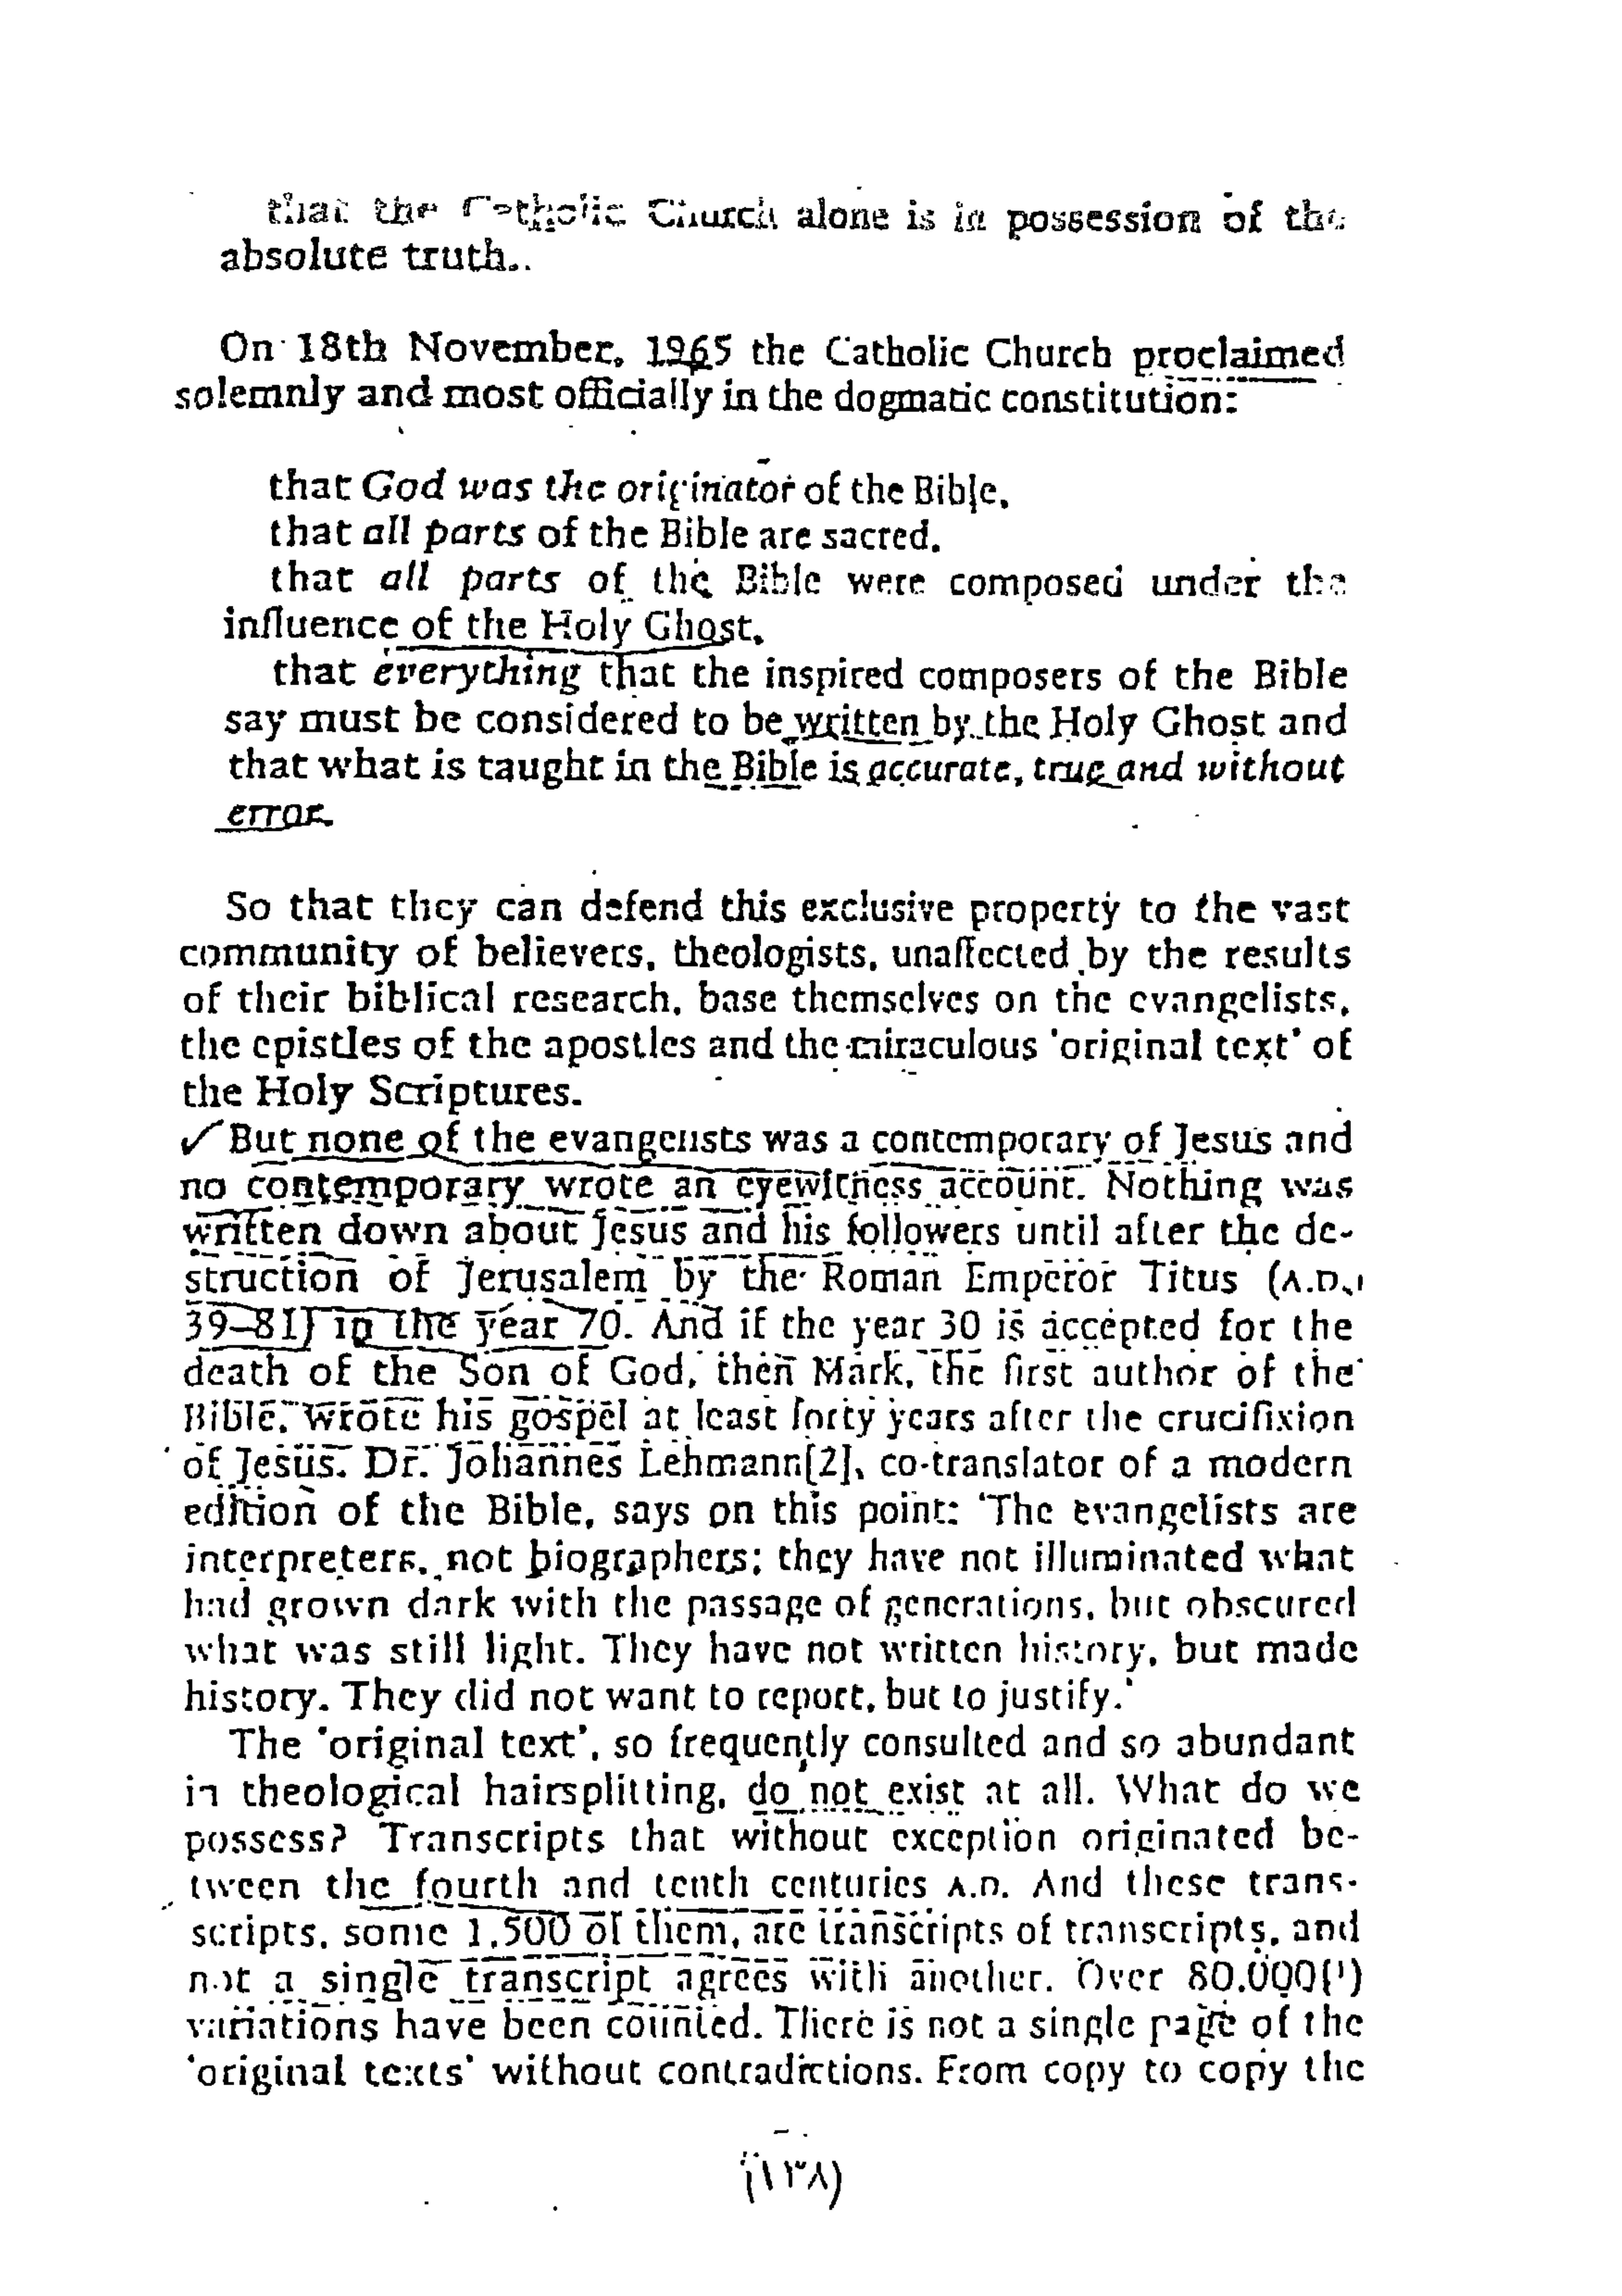 that the Catholic Church alone is in possession of the
absolute truth..
On 18th November, 1965 the Catholic Church proclaimed
solemnly and most officially in the dogmatic constitution:
that God was the originator of the Bible,
that all parts of the Bible are sacred.
that all parts of the Bible were composed under the
influence of the Holy Ghost.
that everything that the inspired composers of the Bible
say must be considered to be written by the Holy Ghost and
that what is taught in the Bible is accurate, true and without
error.
So that they can defend this exclusive property to the vast
community of believers, theologists, unaffected by the results
of their biblical research, base themselves on the evangelists,
the epistles of the apostles and the miraculous 'original text' of
the Holy Scriptures.
✓ But none of the evangelists was a contemporary of Jesus and
no contemporary wrote an eyewitness account. Nothing was
written down about Jesus and his followers until after the de-
struction of Jerusalem by the Roman Emperor Titus (A.D.
39–81) in the year 70. And if the year 30 is accepted for the
death of the Son of God, then Mark, the first author of the
Bible, wrote his gospel at least forty years after the crucifixion
of Jesus. Dr. Johannes Lehmann[2], co-translator of a modern
edition of the Bible, says on this point: 'The evangelists are
interpreters, not biographers; they have not illuminated what
had grown dark with the passage of generations, but obscured
what was still light. They have not written history, but made
history. They did not want to report, but to justify.'
The 'original text', so frequently consulted and so abundant
in theological hairsplitting, do not exist at all. What do we
possess? Transcripts that without exception originated be-
tween the fourth and tenth centuries A.D. And these trans-
scripts, some 1,500 of them, are transcripts of transcripts, and
not a single transcript agrees with another. Over 80,000(!)
variations have been counted. There is not a single page of the
'original texts' without contradictions. From copy to copy the
(١٣٨)